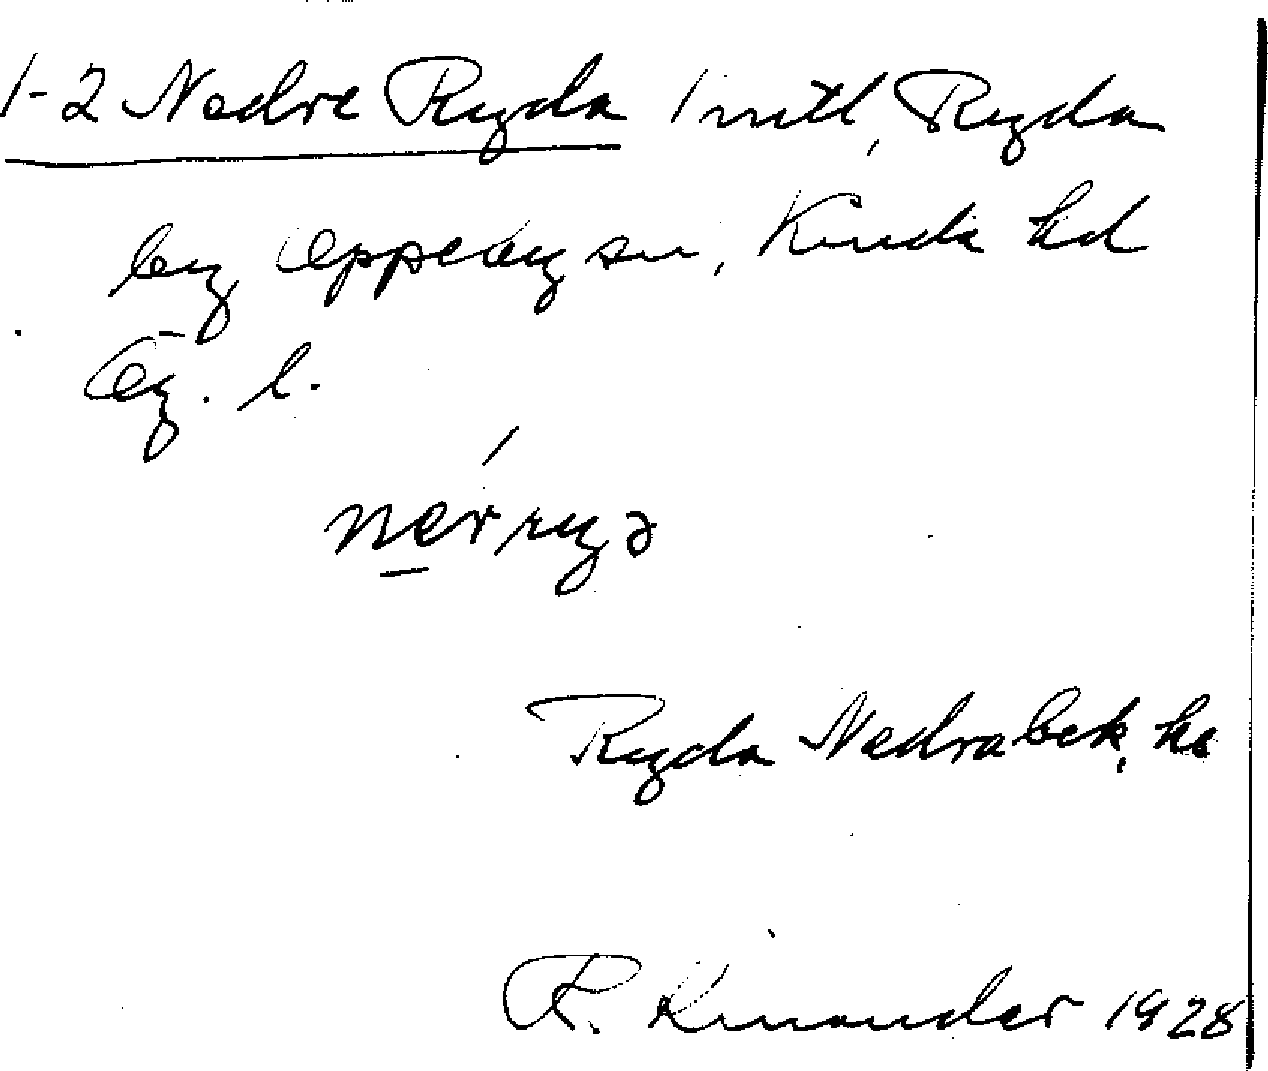 1-2 Nedre Ryda 1 mtl, Ryda
by Oppeby sn, Kinda hd
Ög. l.
nèr ryd
Ryda Nedrabek, ka
R. Kinander 1928